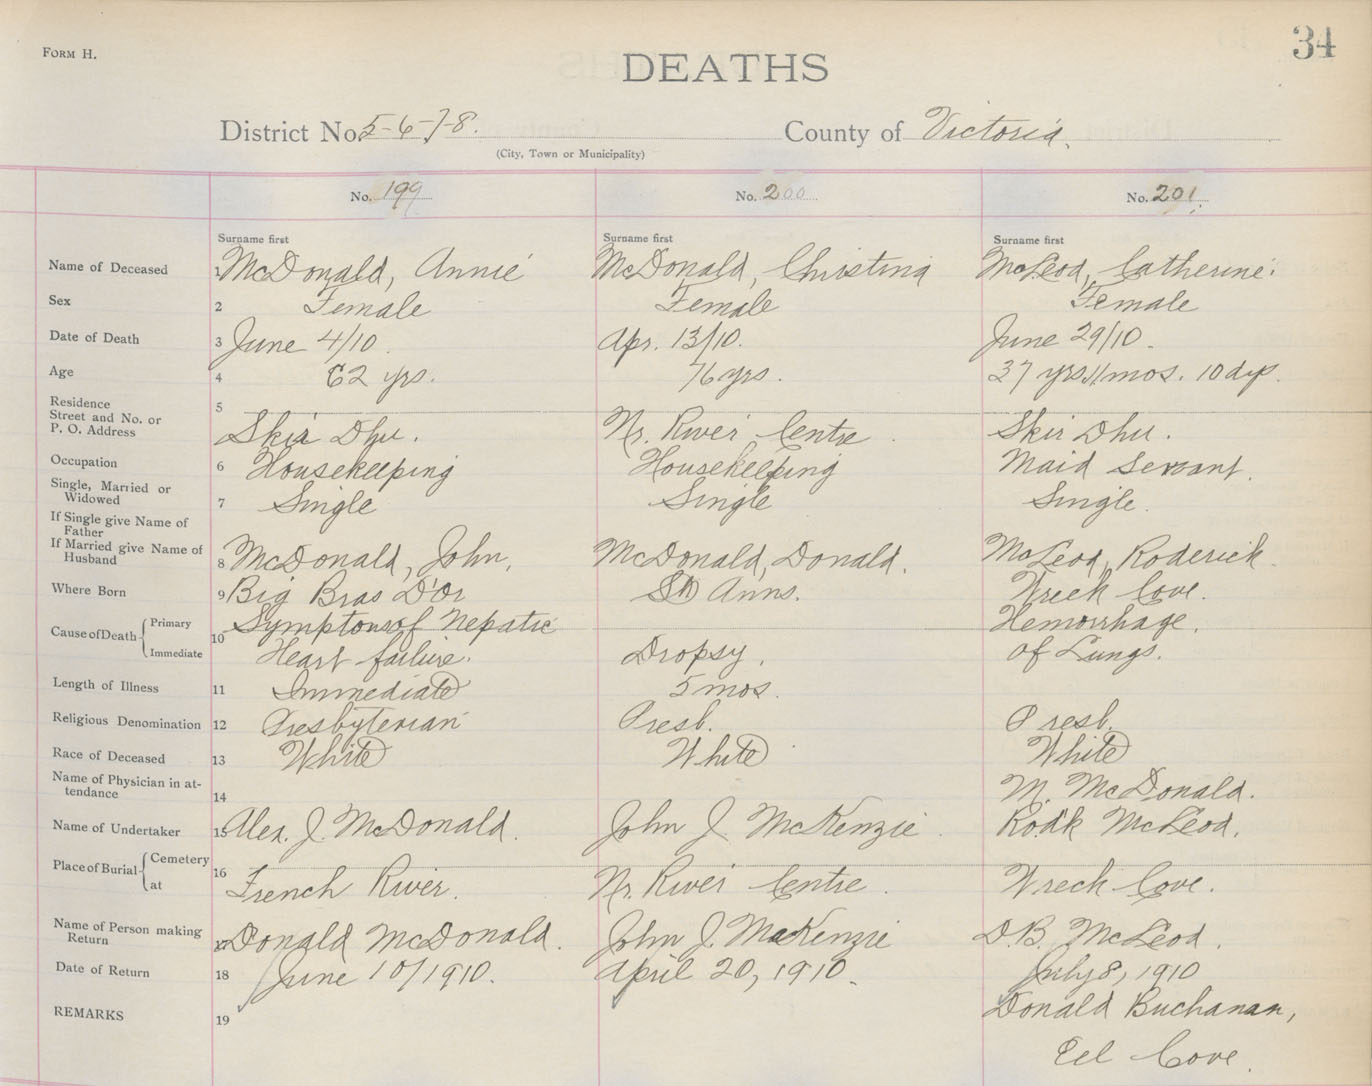 FORM H.
34
DEATHS
District No. 5-6-7-8.
County of Victoria.
(City, Town or Municipality)
No. 199
No. 200
No. 201.
Surname first
Surname first
Surname first
Name of Deceased 1 McDonald, Annie McDonald, Christina McLeod, Catherine.
Sex 2 Female Female Female
Date of Death 3 June 4/10 Apr. 13/10. June 29/10.
Age 4 62 yrs. 76 yrs. 37 yrs. 11 mos. 10 dys.
Residence
Street and No. or
P. O. Address 5 Skir Dhu. Nr. River Centre Skir Dhu.
Occupation 6 Housekeeping Housekeeping Maid Servant.
Single, Married or
Widowed 7 Single Single Single.
If Single give Name of
Father
If Married give Name of
Husband 8 McDonald, John, McDonald, Donald. McLeod, Roderick.
Where Born 9 Big Bras D'Or St Anns. Wreck Cove.
Cause of Death { Primary Symptons of Hepatic Hemorrhage.
Immediate 10 Heart failure. Dropsy. of Lungs.
Length of Illness 11 Immediate 5 mos.
Religious Denomination 12 Presbyterian Presb. Presb.
Race of Deceased 13 White White White
Name of Physician in at-
tendance 14 M. McDonald.
Name of Undertaker 15 Alex. J. McDonald. John J McKenzie. Rodk McLeod.
Place of Burial { Cemetery
at 16 French River. Nr. River Centre. Wreck Cove.
Name of Person making
Return 17 Donald McDonald. John J. McKenzie D.B. McLeod.
Date of Return 18 June 10/1910. April 20, 1910. July 8, 1910
REMARKS 19 Donald Buchanan,
Eel Cove.